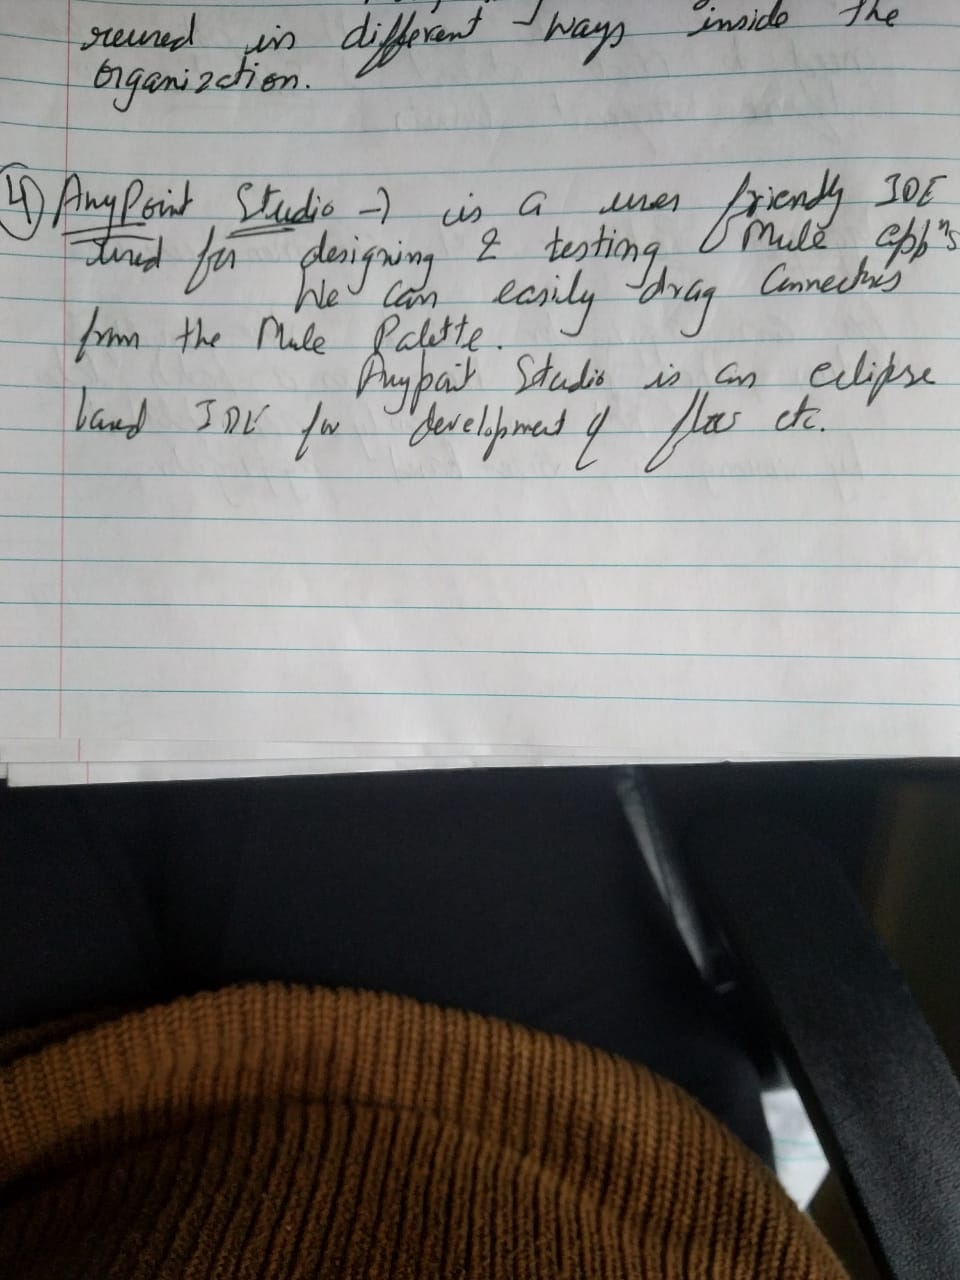 reused in different ways inside the
Organization.
4) AnyPoint Studio → is a user friendly IDE
used for designing & testing Mule appⁿs
We can easily drag Connectors
from the Mule Palette.
Anypoint Studio is an eclipse
based IDE for development of flows etc.